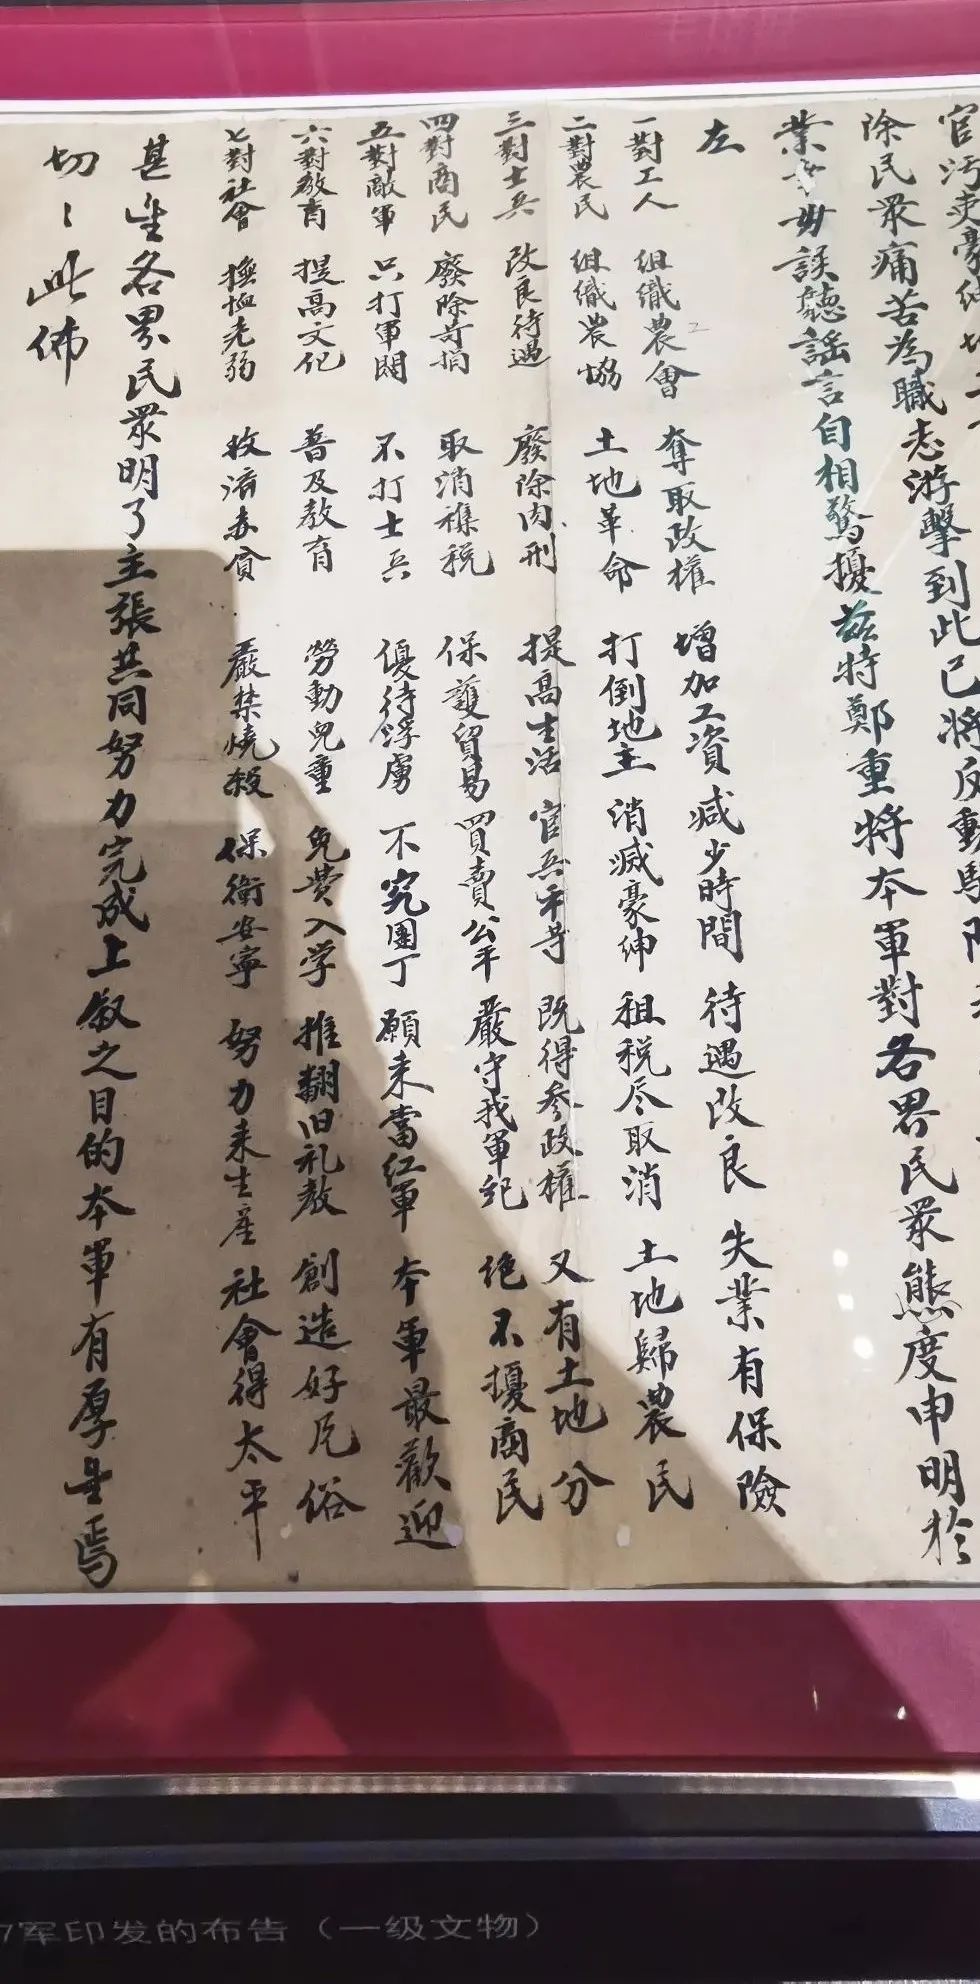 官污吏豪紳地主
除民眾痛苦為職志游擊到此已將反動駐隊
業 毋誤聽謠言自相驚擾茲特鄭重將本軍對各界民眾態度申明於
左
一對工人 組織農會 奪取政權 增加工資 減少時間 待遇改良 失業有保險
二對農民 組織農協 土地革命 打倒地主 消滅豪紳 租稅尽取消 土地歸農民
三對士兵 改良待遇 廢除肉刑 提高生活 官兵平等 既得參政權 又有土地分
四對商民 廢除苛捐 取消雜稅 保護貿易 買賣公平 嚴守我軍紀 绝不擾商民
五對敵軍 只打軍閥 不打士兵 優待俘虜 不究團丁 願来當红軍 本軍最歡迎
六對教育 提高文化 普及教育 勞動兒童 免費入学 推翻旧礼教 創造好風俗
七對社會 撫恤老弱 救济赤貧 嚴禁燒殺 保衛安寧 努力来生產 社會得太平
甚望各界民眾明了主張共同努力完成上叙之目的本軍有厚望焉
切〻此佈
7军印发的布告（一级文物）